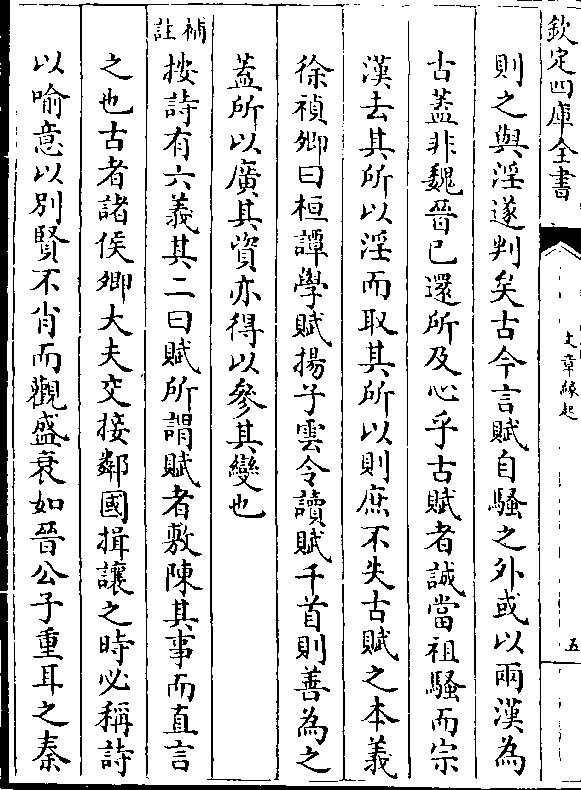 欽定四庫全書
文章緣起
五
則之與淫遂判矣古今言賦自騷之外或以兩漢為
古蓋非魏晉已還所及心乎古賦者誠當祖騷而宗
漢去其所以淫而取其所以則庶不失古賦之本義
徐禎卿曰桓譚學賦揚子雲令讀賦千首則善為之
蓋所以廣其資亦得以參其變也
補註
按詩有六義其二曰賦所謂賦者敷陳其事而直言
之也古者諸侯卿大夫交接鄰國揖讓之時必稱詩
以喻意以別賢不肖而觀盛衰如晉公子重耳之秦